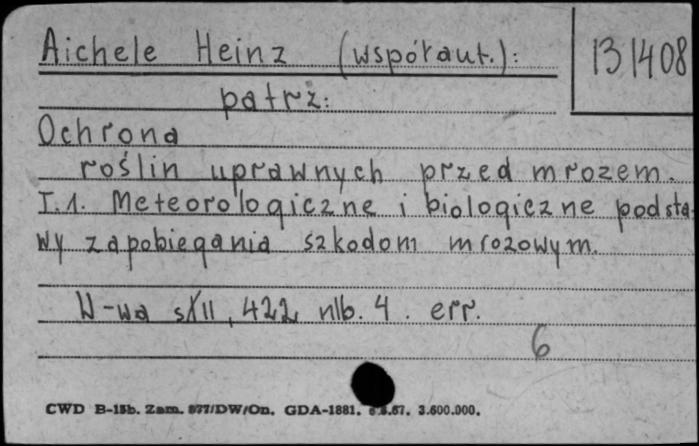 Aichele Heinz (współaut.):
131408
patrz:
Ochrona
roślin uprawnych przed mrozem.
T.1. Meteorologiczne i biologiczne podsta-
wy zapobiegania szkodom mrozowym.
W-wa s. XII, 422 nlb. 4. err.
6
CWD B-15b. Zam. 877/DW/On. GDA-1881. 67. 3.600.000.